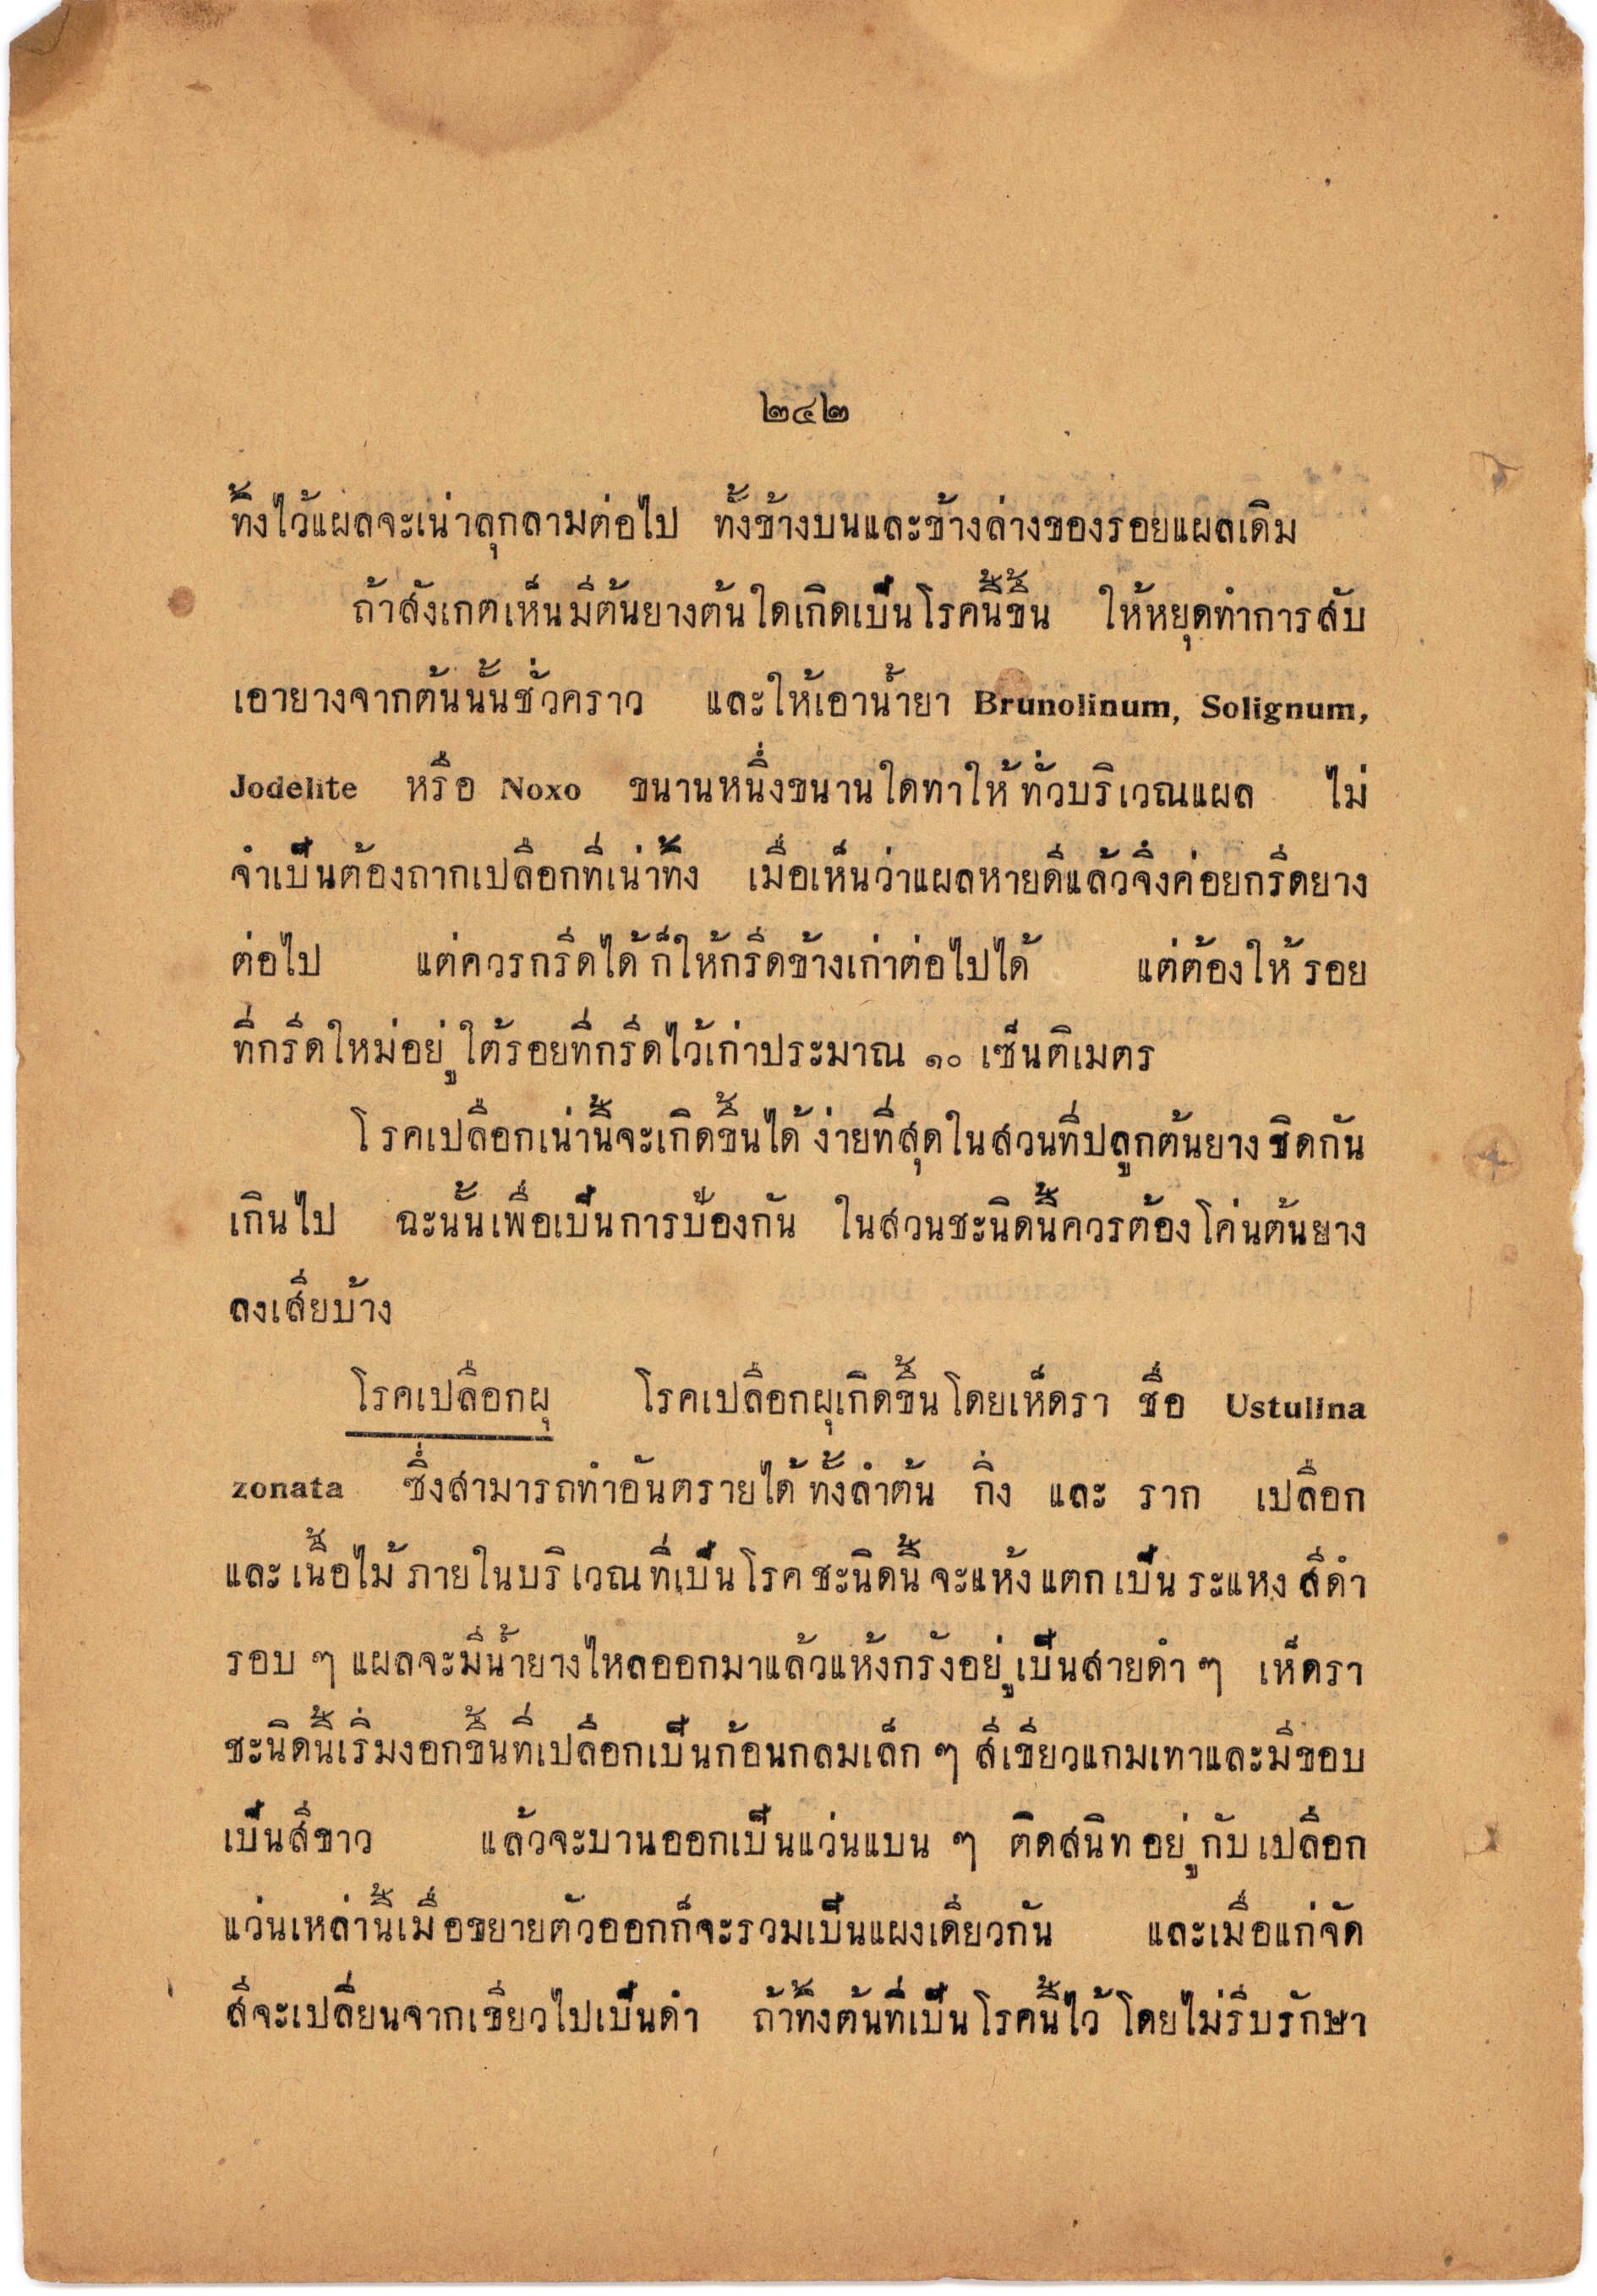 ๒๔๒
ทิ้งไว้แผลจะเน่าลุกลามต่อไป ทั้งข้างบนและข้างล่างของรอยแผลเดิม
ถ้าสังเกตเห็นมีต้นยางต้นใดเกิดเป็นโรคนี้ขึ้น ให้หยุดทำการสับ
เอายางจากต้นนั้นชั่วคราว และให้เอาน้ำยา Brunolinum, Solignum,
Jodelite หรือ Noxo ขนานหนึ่งขนานใดทาให้ทั่วบริเวณแผล ไม่
จำเป็นต้องถากเปลือกที่เน่าทิ้ง เมื่อเห็นว่าแผลหายดีแล้วจึ่งค่อยกรีดยาง
ต่อไป แต่ควรกรีดได้ ก็ให้กรีดข้างเก่าต่อไปได้ แต่ต้องให้รอย
ที่กรีดใหม่อยู่ใต้รอยที่กรีดไว้เก่าประมาณ ๑๐ เซ็นติเมตร
โรคเปลือกเน่านี้จะเกิดขึ้นได้ง่ายที่สุดในสวนที่ปลูกต้นยางชิดกัน
เกินไป ฉะนั้นเพื่อเป็นการป้องกัน ในสวนชะนิดนี้ควรต้องโค่นต้นยาง
ลงเสียบ้าง
โรคเปลือกผุ โรคเปลือกผุเกิดขึ้นโดยเห็ดรา ชื่อ Ustulina
zonata ซึ่งสามารถทำอันตรายได้ทั้งลำต้น กิ่ง และ ราก เปลือก
และเนื้อไม้ภายในบริเวณที่เป็นโรคชะนิดนี้จะแห้งแตกเป็นระแหงสีดำ
รอบ ๆ แผลจะมีน้ำยางไหลออกมาแล้วแห้งกรังอยู่เป็นสายดำ ๆ เห็ดรา
ชะนิดนี้เริ่มงอกขึ้นที่เปลือกเป็นก้อนกลมเล็ก ๆ สีเขียวแกมเทาและมีขอบ
เป็นสีขาว แล้วจะบานออกเป็นแว่นแบน ๆ ติดสนิทอยู่กับเปลือก
แว่นเหล่านี้เมื่อขยายตัวออกก็จะรวมเป็นแผงเดียวกัน และเมื่อแก่จัด
สีจะเปลี่ยนจากเขียวไปเป็นดำ ถ้าทิ้งต้นที่เป็นโรคนี้ไว้โดยไม่รีบรักษา